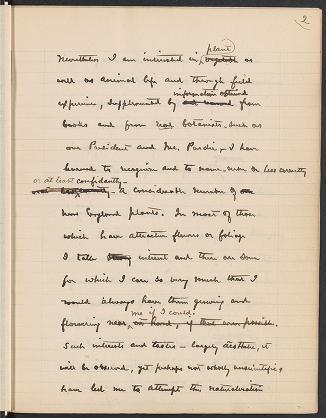 2
plant
Nevertheless I am interested in vegetable as
well as animal life and through field
information obtained
experience, supplemented by from
books and from real botanists, such as
our President and Mr. Pardie, – I have
learned to recognize and to name, more or less correctly
or at least confidently –
a considerable number of
New England plants. In most of those
which have attractive flowers or foliage
I take interest and there are some
for which I care so very much that I
would always have them growing and
me if I could.
flowering near, on hand, if that were possible.
Such interests and tastes – largely aesthetic, it
will be observed, yet perhaps not wholly unscientific
have led me to attempt the naturalization